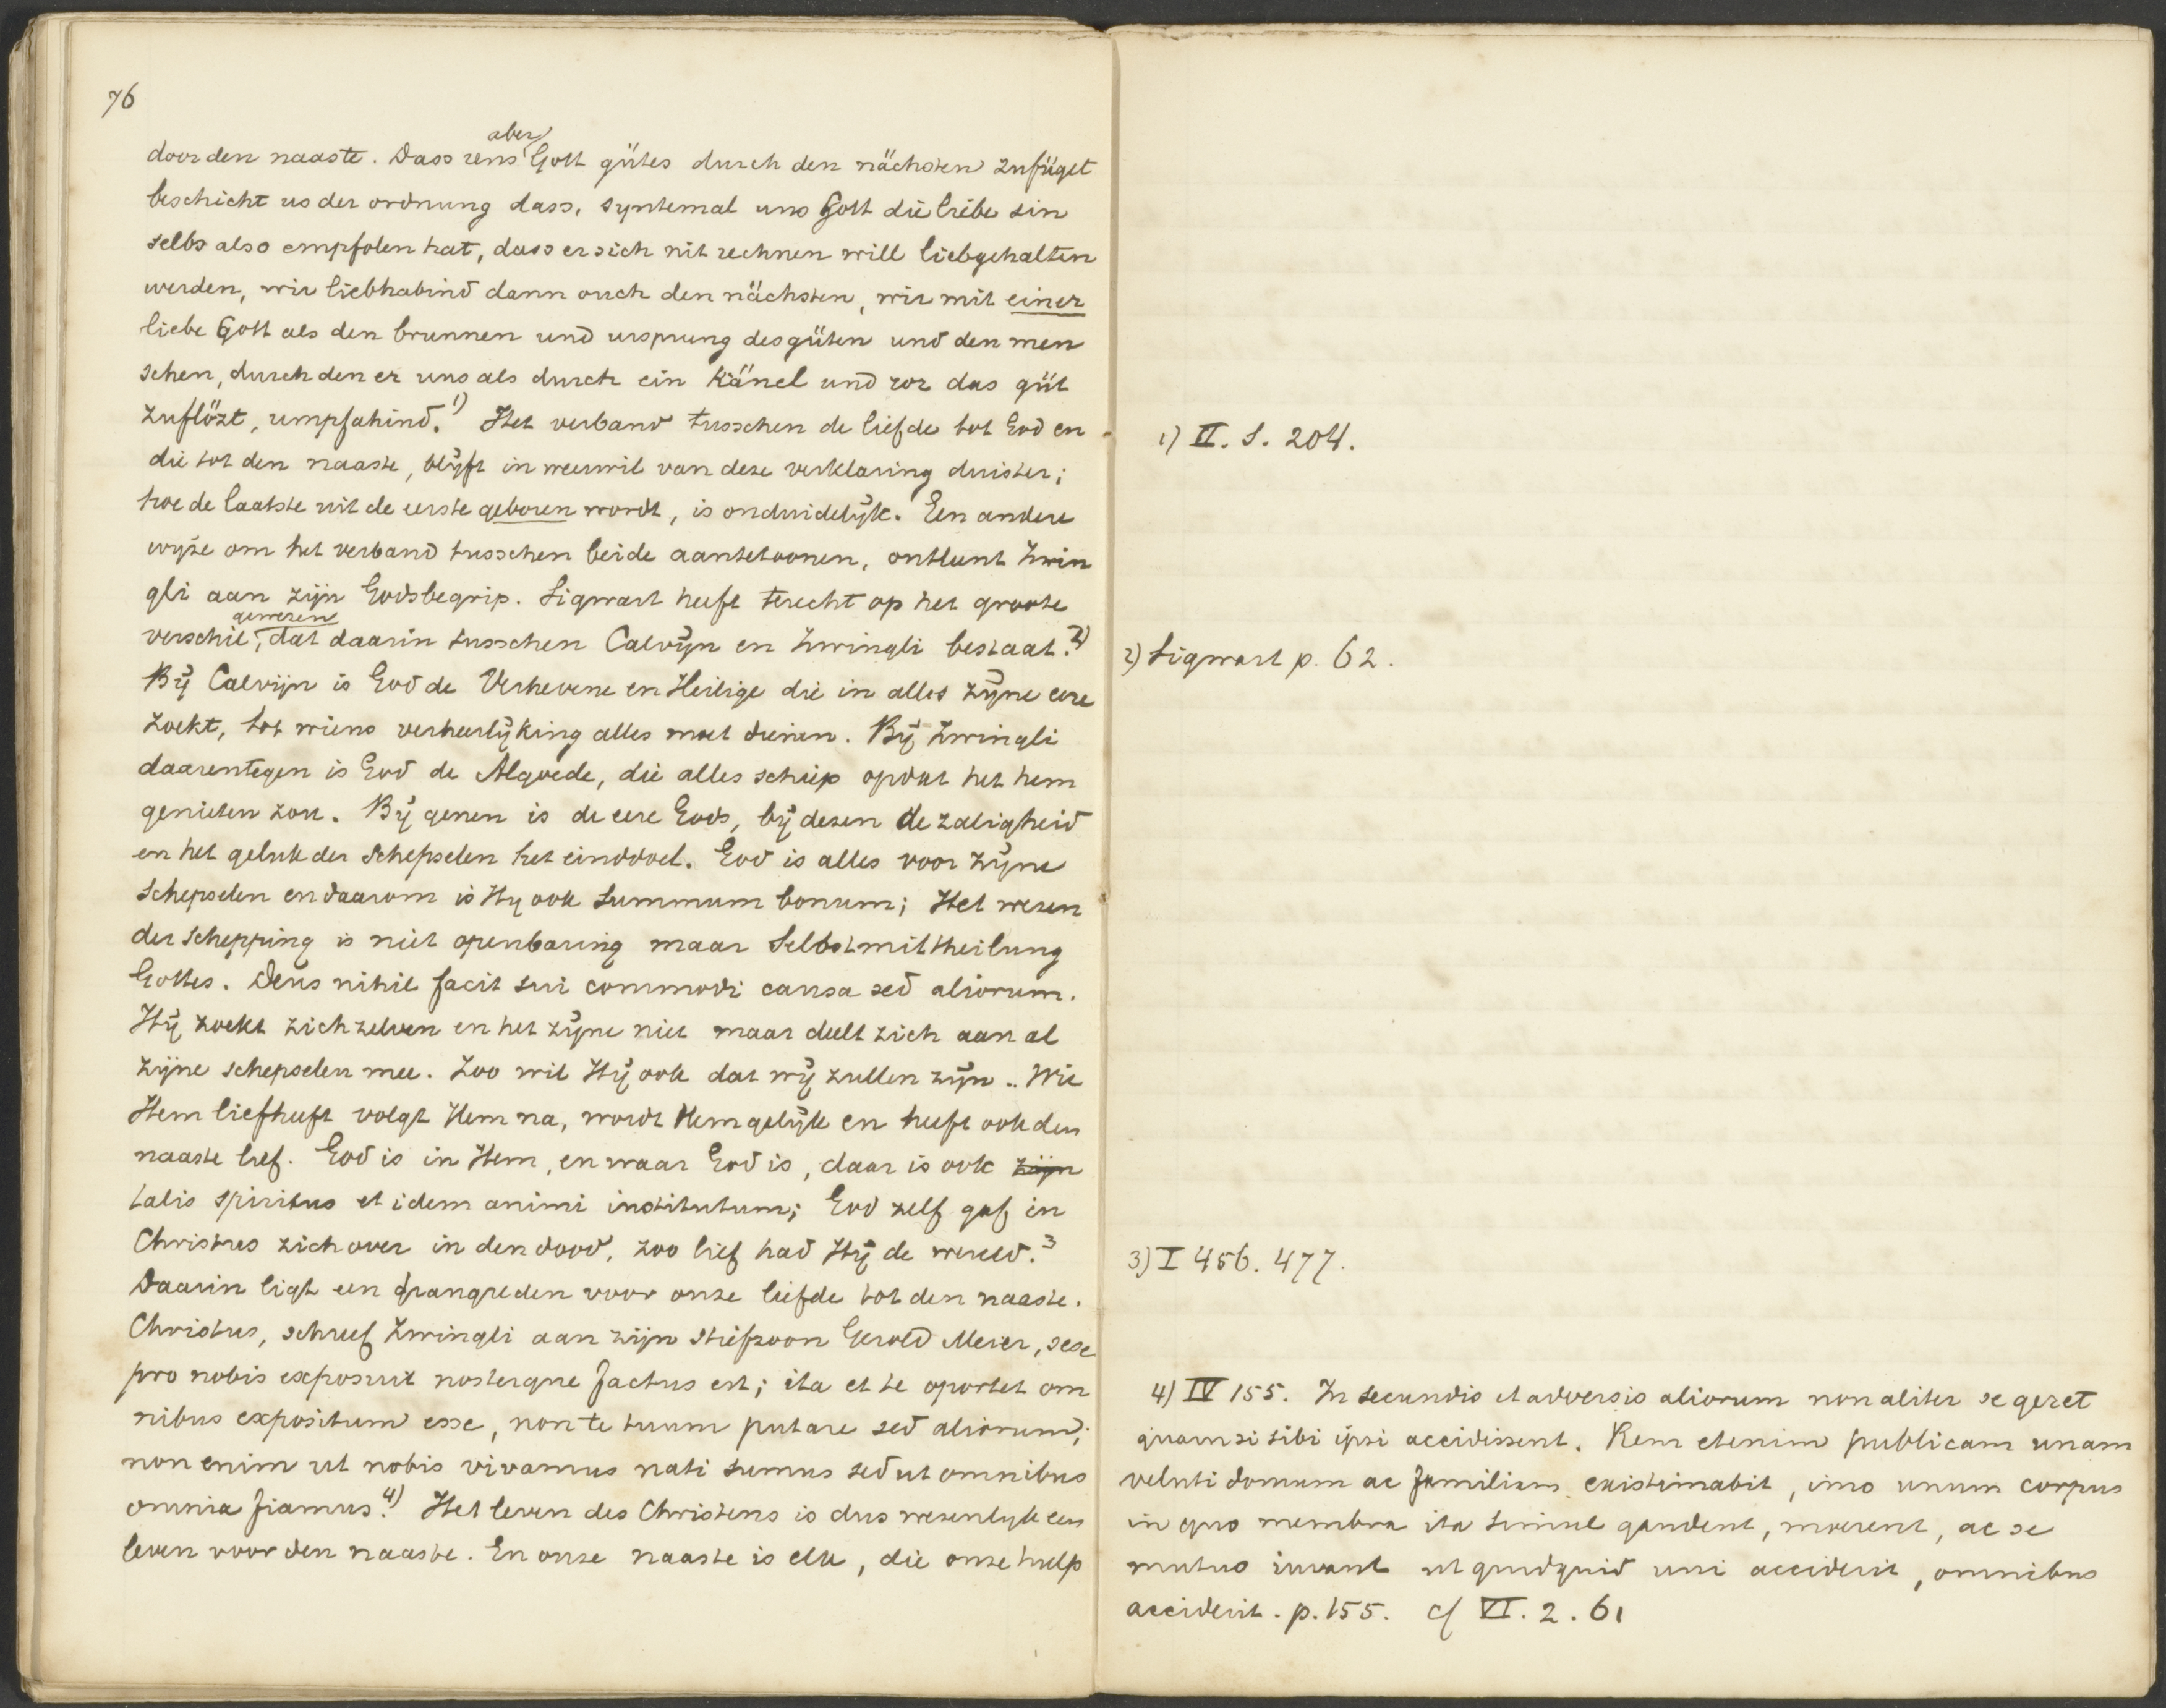 76
door den naaste. Dass uns aber Gott gütes durch den nächsten zufüget
beschicht us der ordnung dass, syntemal uns Gott die liebe sin
selbs also empfolen hat, dass er sich nit rechnen will liebgehalten
werden, wir liebhabind dann ouch den nächsten, wir mit einer
liebe Gott als den brunnen und ursprung des güten und den men
schen, durch den er uns als durch ein känel und ror das güt
zuflözt, umpfahind. 1) Het verband tusschen de liefde tot God en
die tot den naaste, blijft in weerwil van deze verklaring duister;
hoe de laatste uit de eerste geboren wordt, is onduidelijk. Een andere
wijze om het verband tusschen beide aantetoonen, ontleent Zwin
gli aan zijn Godsbegrip. Sigwart heeft terecht op het groote
verschil gewezen, dat daarin tusschen Calvijn en Zwingli bestaat. 2)
Bij Calvijn is God de Verhevene en Heilige die in alles zijne eere
zoekt, tot wiens verheerlijking alles moet dienen. Bij Zwingli
daarentegen is God de Algoede, die alles schiep opdat het hem
genieten zou. Bij genen is de eere Gods, bij dezen de zaligheid
en het geluk der schepselen het einddoel. God is alles voor zijne
schepselen en daarom is Hij ook summum bonum; Het wezen
der schepping is niet openbaring maar Selbstmittheilung
Gottes. Deus nihil facit sui commodi causa sed aliorum.
Hij zoekt zichzelven en het zijne niet maar deelt zich aan al
zijne schepselen mee. Zoo wil Hij ook dat wij zullen zijn.. Wie
Hem liefheeft volgt Hem na, wordt Hem gelijk en heeft ook den
naaste lief. God is in Hem, en waar God is, daar is ook zijn
talis spiritus et idem animi institutum; God zelf gaf in
Christus zich over in den dood, zoo lief had Hij de wereld. 3
Daarin ligt een drangreden voor onze liefde tot den naaste.
Christus, schreef Zwingli aan zijn stiefzoon Gerold Meier, sese
pro nobis exposuit nosterque factus est; ita et te oportet om
nibus expositum esse, non te tuum putare sed aliorum;
non enim ut nobis vivamus nati sumus sed ut omnibus
omnia fiamus. 4) Het leven des Christens is dus wezenlijk een
leven voor den naaste. En onze naaste is elk, die onze hulp
1) II. S. 204.
2) Sigwart p. 62.
3) I 456. 477.
4) IV 155. In secundis et adversis aliorum non aliter se geret
quam si sibi ipsi accidissent. Rem etenim publicam unam
veluti domum ac familiam existimabit, imo unum corpus
in quo membra ita simul gaudent, moerent, ac se
mutuo iuvant ut quidquid uni acciderit, omnibus
acciderit. p. 155. cf VI. 2. 61